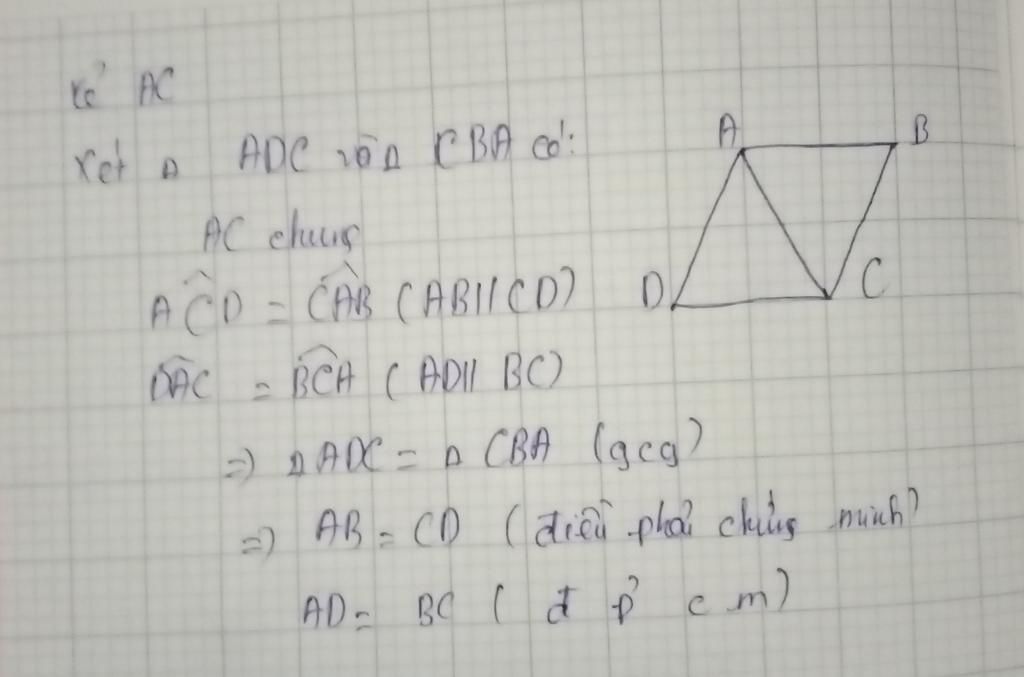 Kẻ AC
Xét Δ ADC và Δ CBA có:
AC chung
A B
D C
AĈD = CÂB (AB // CD)
DÂC = BĈA (AD // BC)
=> Δ ADC = Δ CBA (gcg)
=> AB = CD (điều phải chứng minh)
AD = BC (đ p c m)